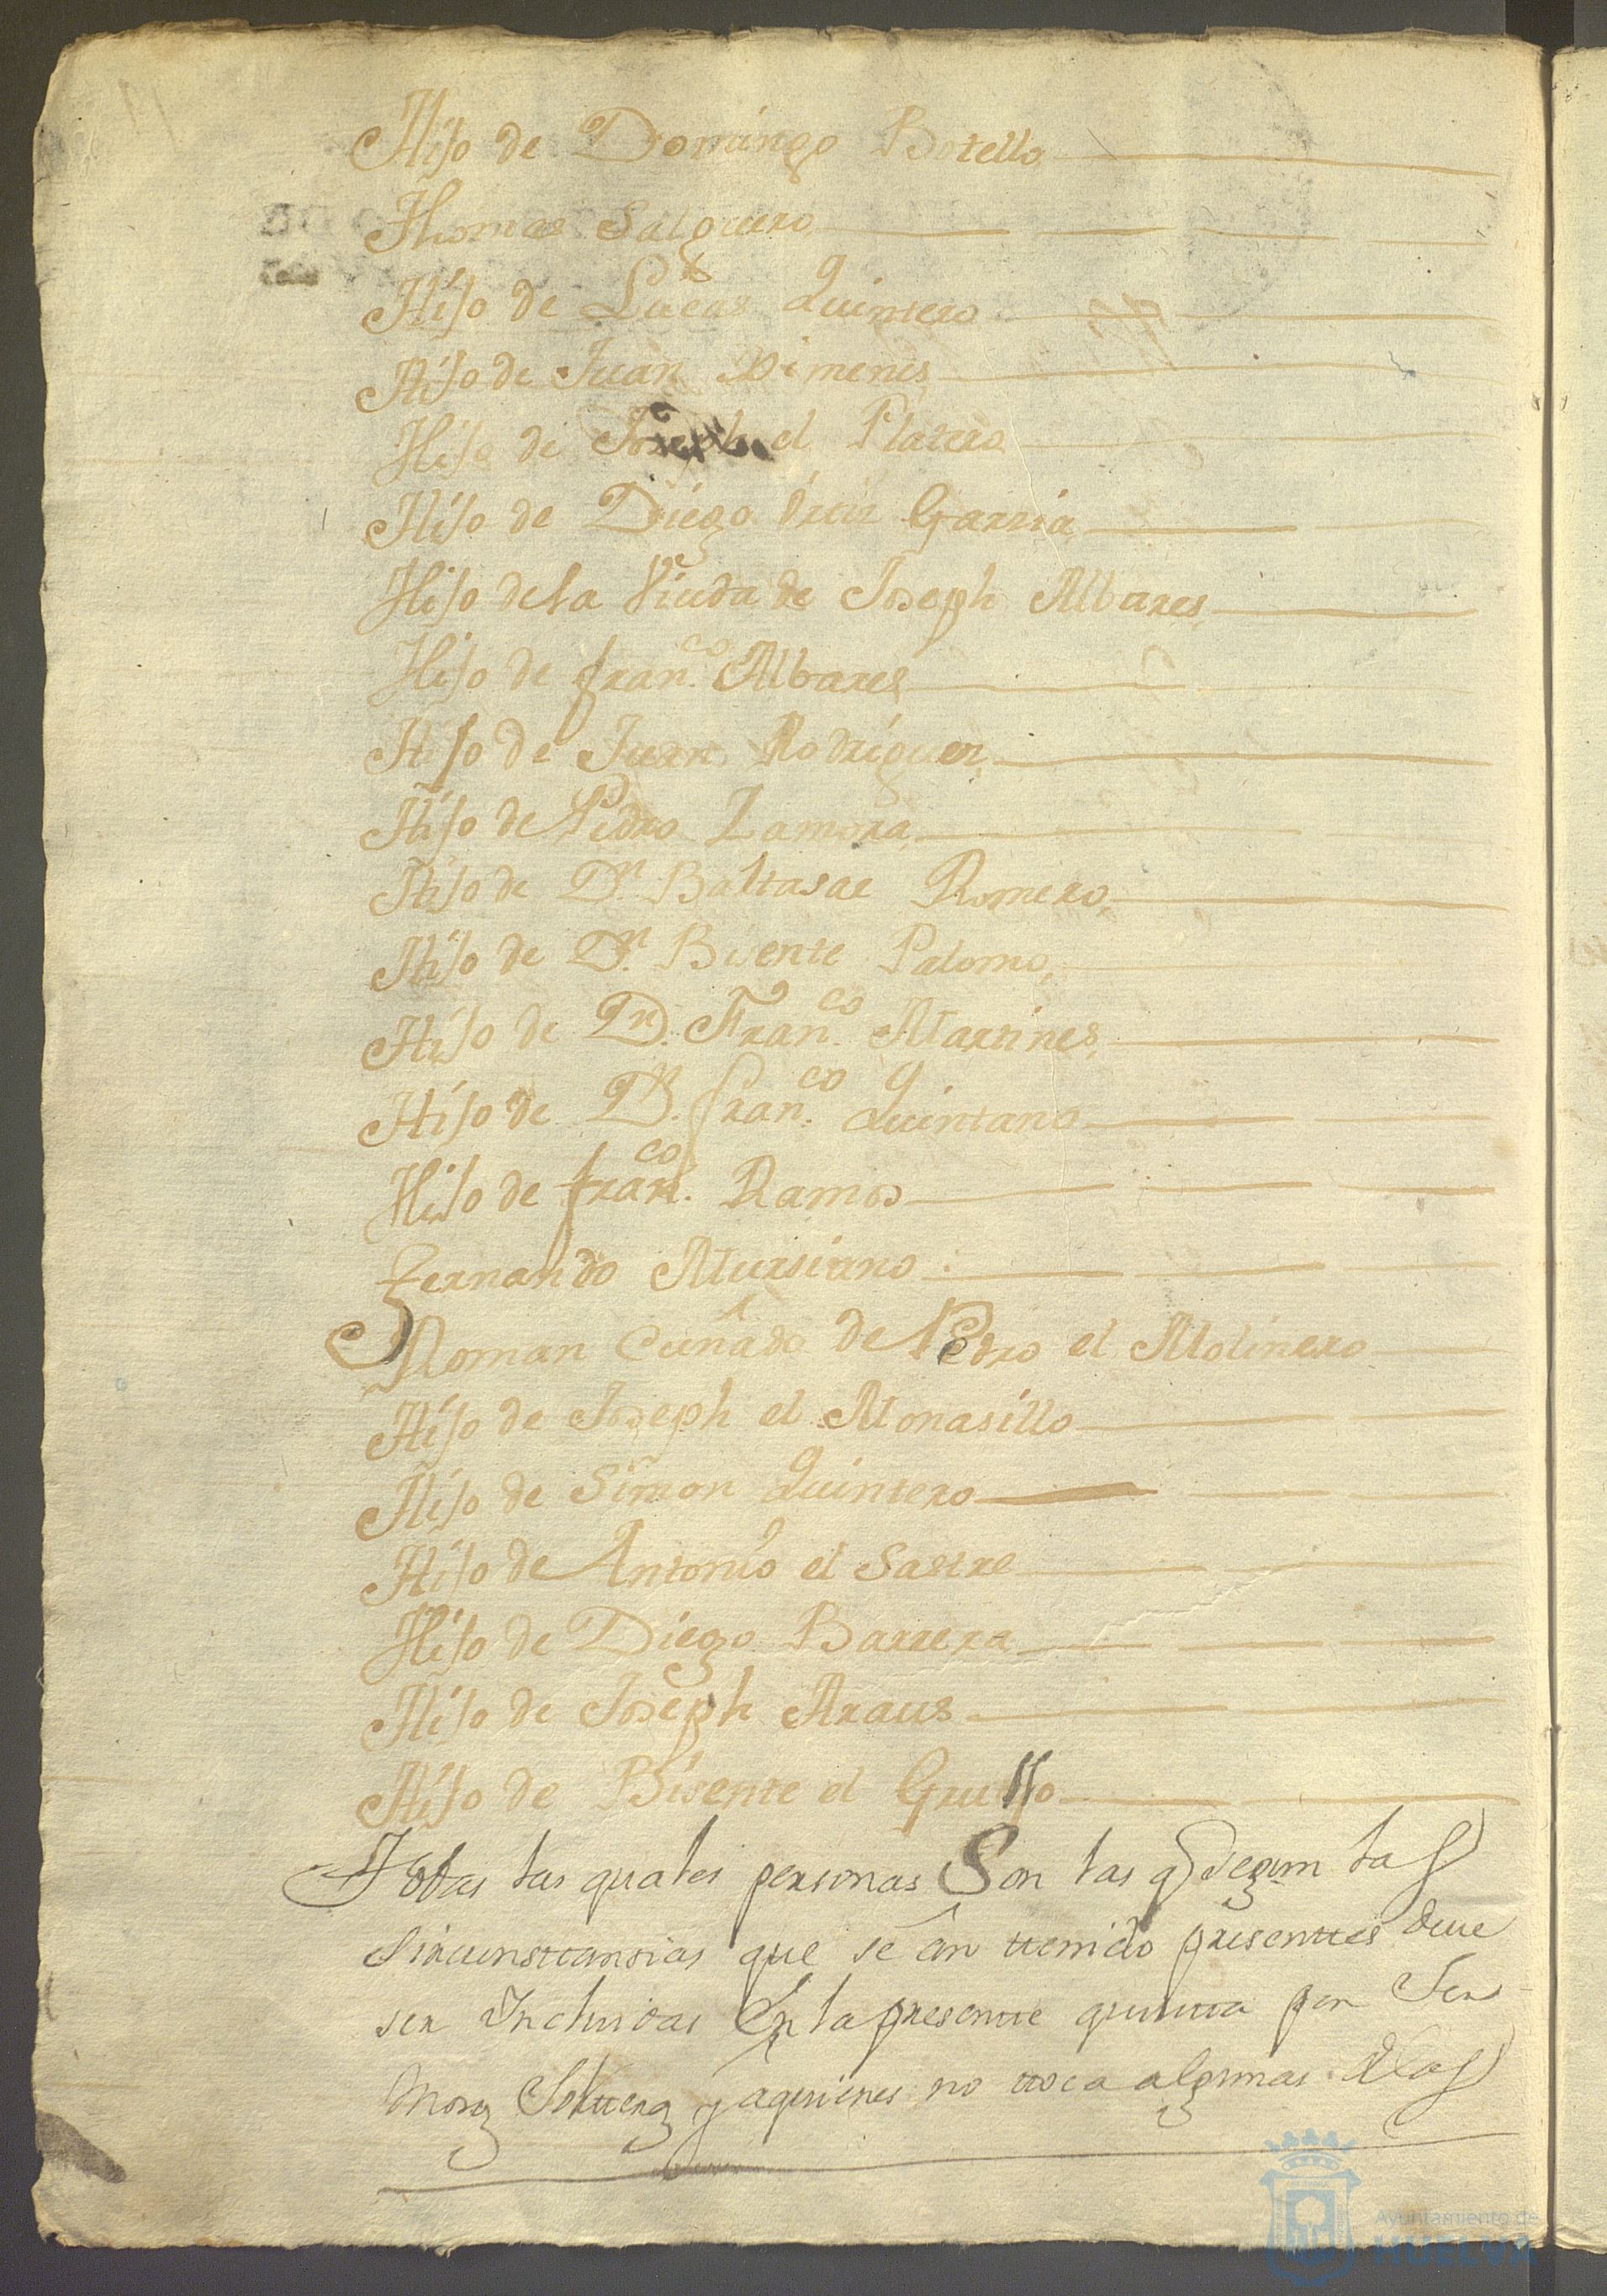 Hijo de Domingo Botello
Thomas Salguero
Hijo de Lucas Quintero
Hijo de Juan Ximenes
Hijo de Joseph el Platero
Hijo de Diego Garsia
Hijo de la Viuda de Joseph Albares
Hijo de fran.co Albares
Hijo de Juan Rodriguez
Hijo de Pedro Zamora
Hijo de Dn. Baltasar Romero
Hijo de Dn. Bisente Palomo
Hijo de Dn. Fran.co Martines
Hijo de Dn. fran.co Quintano
Hijo de fran.co Ramos
Fernando Mursiano
Roman Cuñado de Pedro el Molinero
Hijo de Joseph el Monasillo
Hijo de Simon Quintero
Hijo de Antonio el Sastre
Hijo de Diego Barrera
Hijo de Joseph Araus
Hijo de Bisente el Grullo
Todas las quales personas Son las q segun las
Sircunsttansias que se an ttenido presenttes deve
ser Incluidas En la presentte quintta por Ser
Mozos Soltteros y a quienes no ttoca algunas de las
Ayuntamiento de
HUELVA